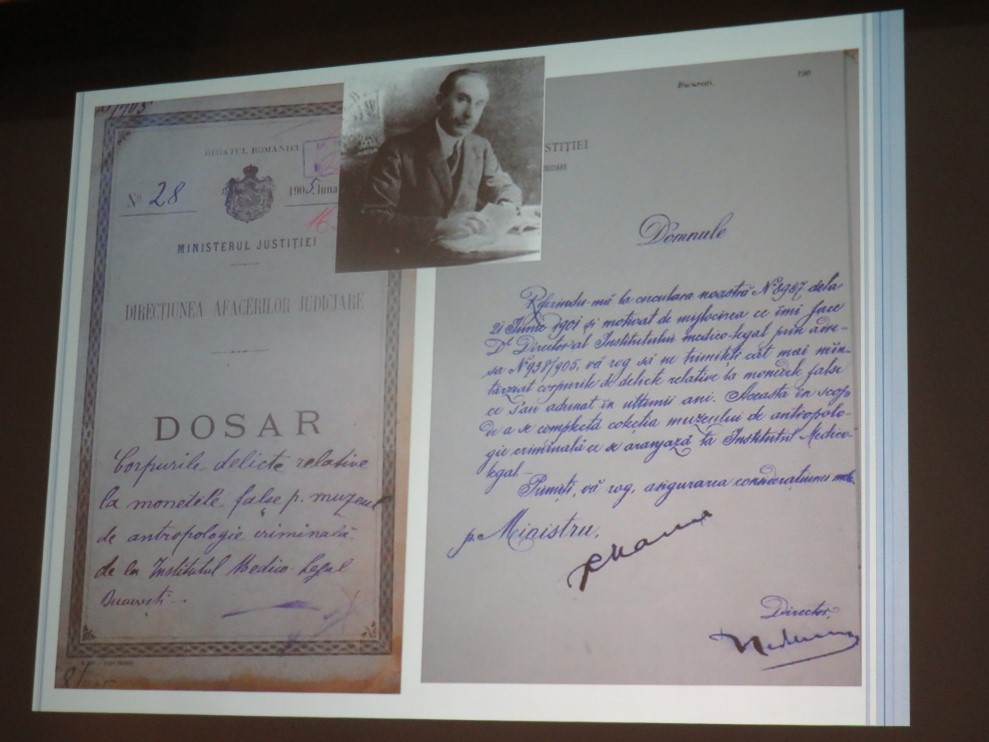 REGATUL ROMÂNIEI
No 28
1905, luna
MINISTERUL JUSTIȚIEI
DIRECȚIUNEA AFACERILOR JUDICIARE
DOSAR
Corpurile delicte relative
la monetele false p. muzeul
de antropologie criminală
de la Institutul Medico-Legal
București
București,
190
STIȚIEI
Domnule
Referindu-mă la circulara noastră No 8987 dela
21 Iunie 1901 și motivat de mijlocirea ce îmi face
Dl Director al Institutului medico-legal prin adre-
sa No 938/905, vă rog să ne trimiteți cât mai neîn-
târziat corpurile de delicte relative la monetele false
ce s'au adunat în ultimii ani. Aceasta în scop
de a se completa colecția muzeului de antropolo-
gie criminală ce se aranjază la Institutul Medico-
legal.
Primiți, vă rog, asigurarea considerațiunei mele.
p. Ministru,
Director,